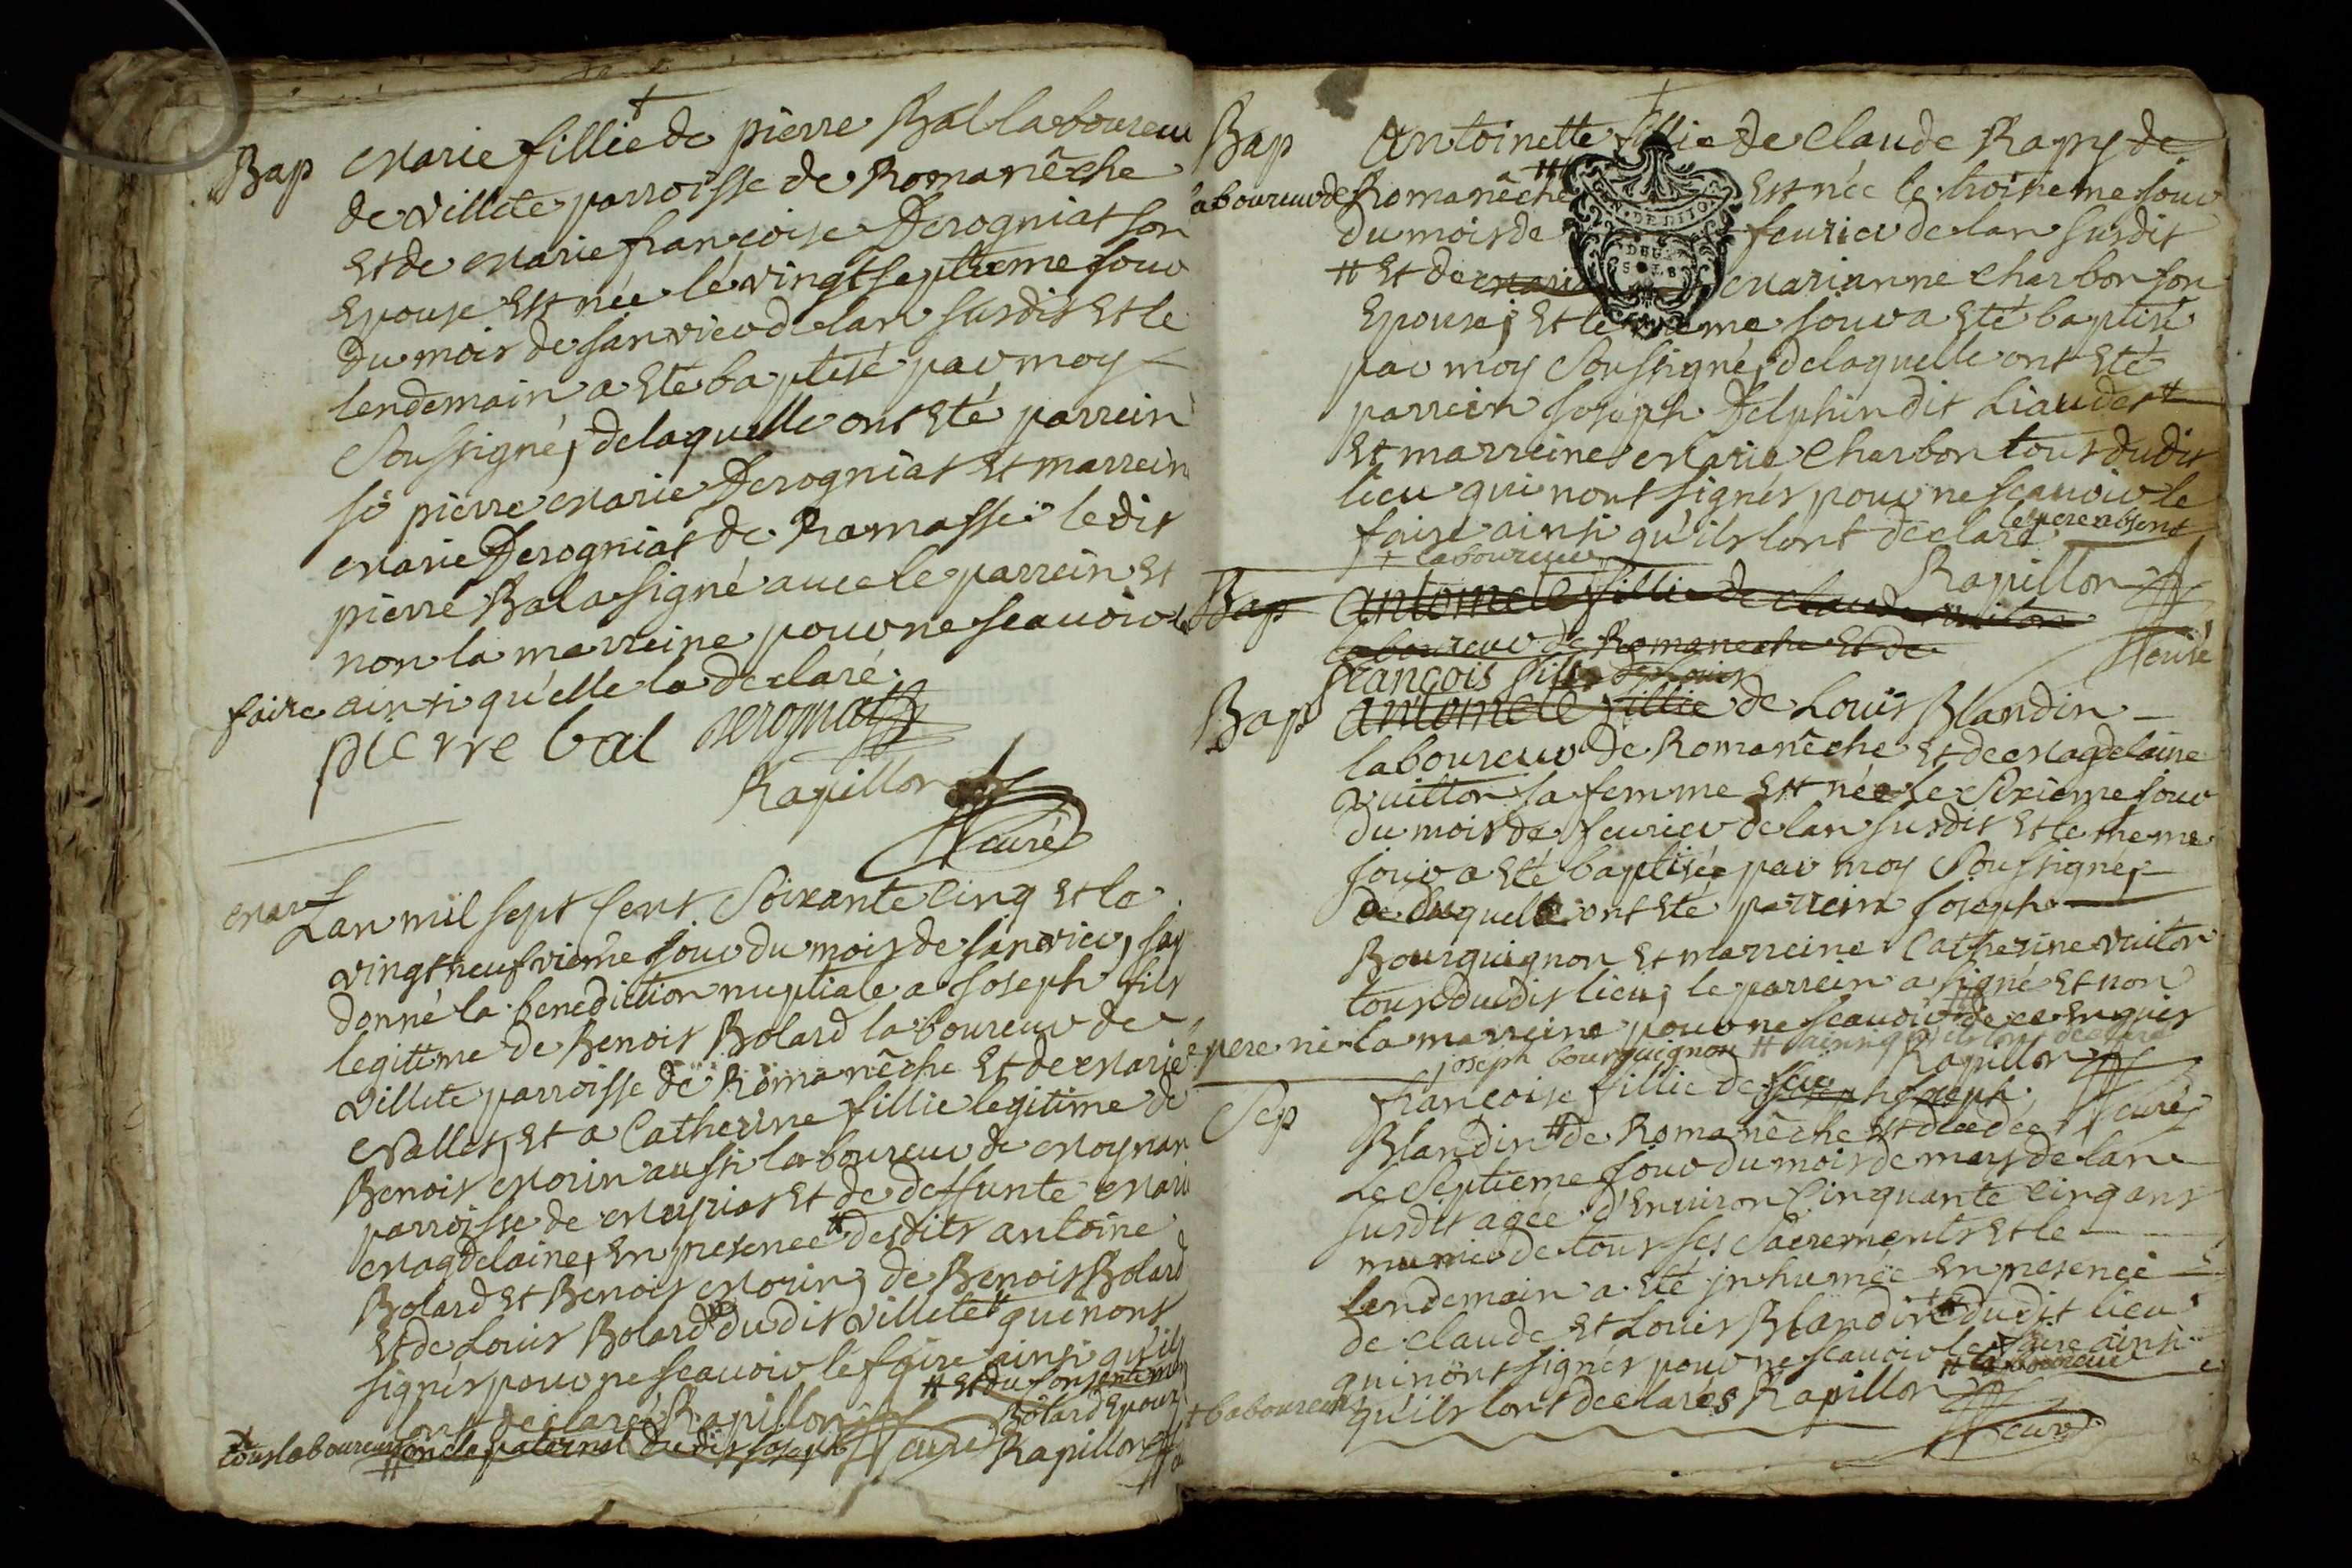 Bap Marie fillie de pierre Bal laboureur
de villete parroisse de Romanêche
Et de Marie françoise Derogniat son
Epouse Est née le vingt septieme jour
du mois de janvier de lan susdit Et le
lendemain a Eté baptisé par moy
Soussigné, de laquelle ont Eté parrein
sr pierre Marie Derogniat Et marrein
Marie Derogniat de Ramasse le dit
pierre Bal a signé avec le parrein Et
non la marreine pour ne scauoir
faire ainsi qu'elle la declaré
pierre bal Derogniat
Rapillon
curé
Mar Lan mil sept Cent Soixante Cinq Et le
vingt neufvieme jour du mois de janvier, jay
donné la benediction nuptiale a Joseph fils
legitime de Benois Bolard laboureur de
villete parroisse de Romanêche Et de Marie
Vallet, Et a Catherine fillie legitime de
Benois Morin aussi laboureur de
parroisse de Meyriat Et de deffunte Mari
Magdelaine, En presence # desdits antoine
Bolard Et Benois Morin, de Benois Bolard
Et de Louis Bolard dudit villete qui nont
signés pour ne scauoir le faire ainsi qu'ils
lont declaré Rapillon curé
# Et du Consentement
Bolard Epoux
Rapillon
tous laboureurs # oncle paternel dudit joseph
Bap Antoinette fillie de Claude Rapy de
laboureur de Romanêche # Est née le troisieme jour
GEN. DE DIJON
DEUX
SOLS
du mois de feurier de lan susdit
# Et de Mari Marianne Charbon son
Epouse; Et le meme jour a Eté baptisé
par moy Soussigné, de laquelle ont Eté
parrein Joseph Delphin dit Liaudet
Et marreine Marie Charbon tous dudit
lieu qui nont signés pour ne scauoir le
faire ainsi qu'ils lont declaré le pere absent
+ laboureur
Rapillon
curé
Bap antoinete fillie de claude
laboureur de Romaneche Et de
françois fils de Louis
Bap antoinete fillie de Louis Blandin
laboureur de Romanêche Et de Magdelaine
vuillon sa femme Est née le Sixieme jour
du mois de feurier de lan susdit Et le meme
jour a Eté baptisée par moy Soussigné,
de duquel ont Eté parrein Joseph
Bourguignon Et marreine Catherine
tous dudit lieu, le parrein a signé Et non
pere ni la marreine pour ne scauoir de ce Enquis
joseph bourguignon # ainsi qu'ils lont declaré
Rapillon
curé
Sep françoise fillie de feu joseph
Blandin # de Romanêche Est decedée
Le Septieme jour du mois de mars de lan
susdit agée d'Enuiron Cinquante Cinq ans
munie de tous ses Sacrements Et le
lendemain a Eté jnhumée En presence
de claude Et Louis Blandin dudit lieu
qui nont signés pour ne scauoir le faire ainsi
# laboureur
+ laboureurs qu'ils lont declarés Rapillon
curé